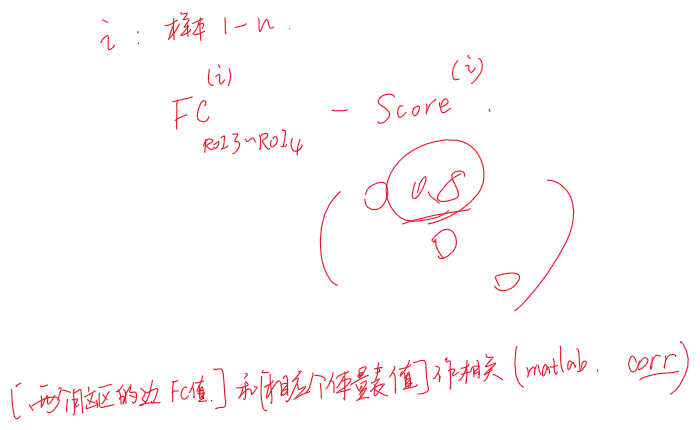 i : 样本 1-n.
FC^(i)_ROI3~ROI4 - Score^(i).
0 0.8
0
0
[两个脑区的边 FC值.] 和[相应个体量表值]作相关 (matlab. corr)